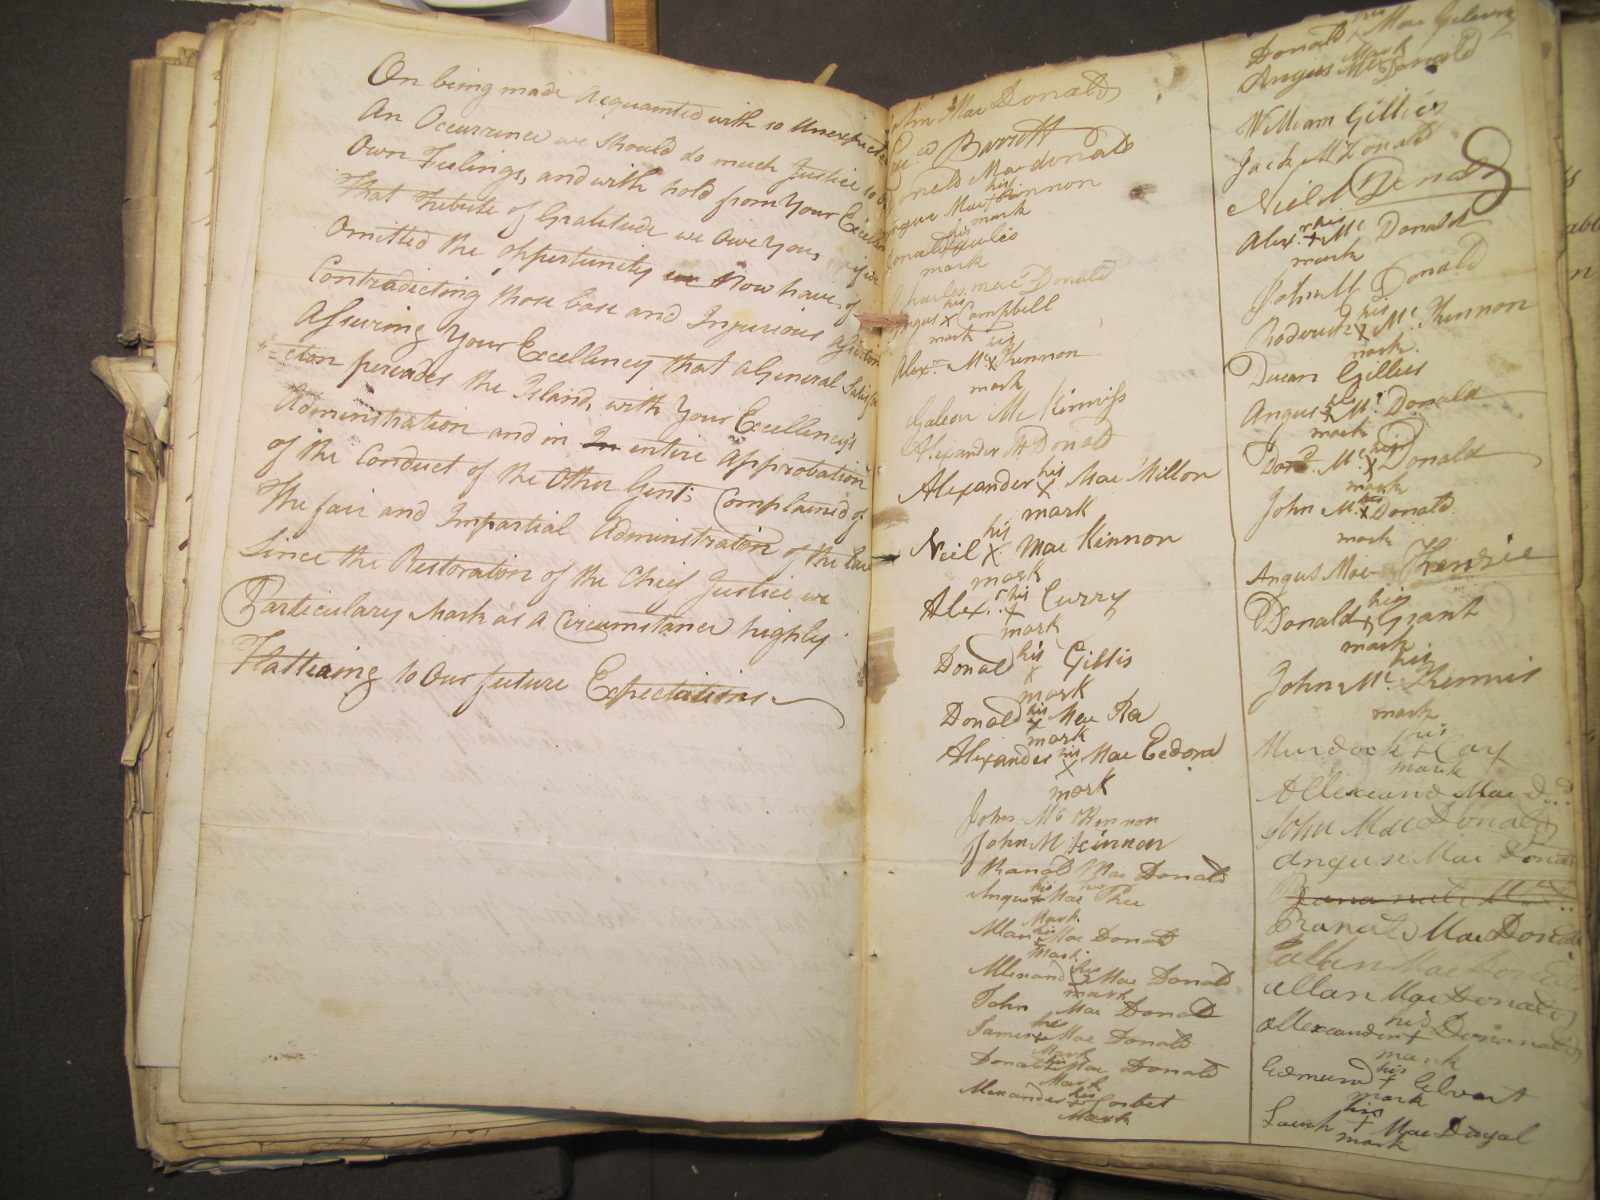 On being made Acquainted with so Unexpected
An Occurrence we should do much Justice to
Own Feelings, and with hold from Your Excellen
That Tribute of Gratitude we Owe You, if we
Omitted the opportunity we Now have of
Contradicting those base and Injurious Assertions
Assuring Your Excellency that a General Satisfa
=ction pervades the Island, with Your Excellency's
Administration and in In entire Approbation
of the Conduct of the Other Gent.s Complained of
The fair and Impartial Administration of the Law
Since the Restoration of the Chief Justice we
Particularly Mark as a Circumstance highly
Flattering to Our future Expectations
Mac Donald
Barrett
Donald Macdonald
his
Angus Mac Kinnon
mark
his
Donald
mark
Charles Mac Donald
his
Angus x Campbell
mark
his
Alexr. Mc x Kinnon
mark
Mc
Alexander Mc Donald
his
Alexander x Mac Millon
mark
his
Neil x Mac Kinnon
mark
his
Alexr. x Curry
mark
his
Donald x Gillis
mark
his
Donald x Mac Ra
mark
his
Alexander x Mac Eedora
mark
John Mc Kinnon
John M Kinnon
Ranald Mac Donald
his
Angus x Mac Phee
Mark
his
Allan x Mac Donald
Mark
his
Allexand x Mac Donald
mark
John Mac Donald
his
James x Mac Donald
Mark
his
Donald x Mac Donald
Mark
his
Alexander x Corbet
Mark
his
Donald x Mac Gilevry
Mark
Angus Mc Donald
William Gillies
Jack McDonald
Neil Mc Donald
his
Alexr. x Mc Donald
mark
John M Donald
his
Roderick x Mc Kinnon
mark.
Ducan Gillies
his
Angus x Mc Donald
mark
his
Dond. Mc x Donald
mark
his
John Mc x Donald
mark
Angus Mac Kenzie
his
Donald x Grant
mark
his
John Mc Kennis
mark
his
Murdock x Cay
mark
Allexand Mac Dd.
John Mac Donald
Angus Mac Donald
Ranald Mac Donald
Allan Mac Donald
Allan Mac Donald
his
Allexander x Donanald
mark
his
Edmund x Elvart
mark
his
Lauch x Mac Dugal
mark